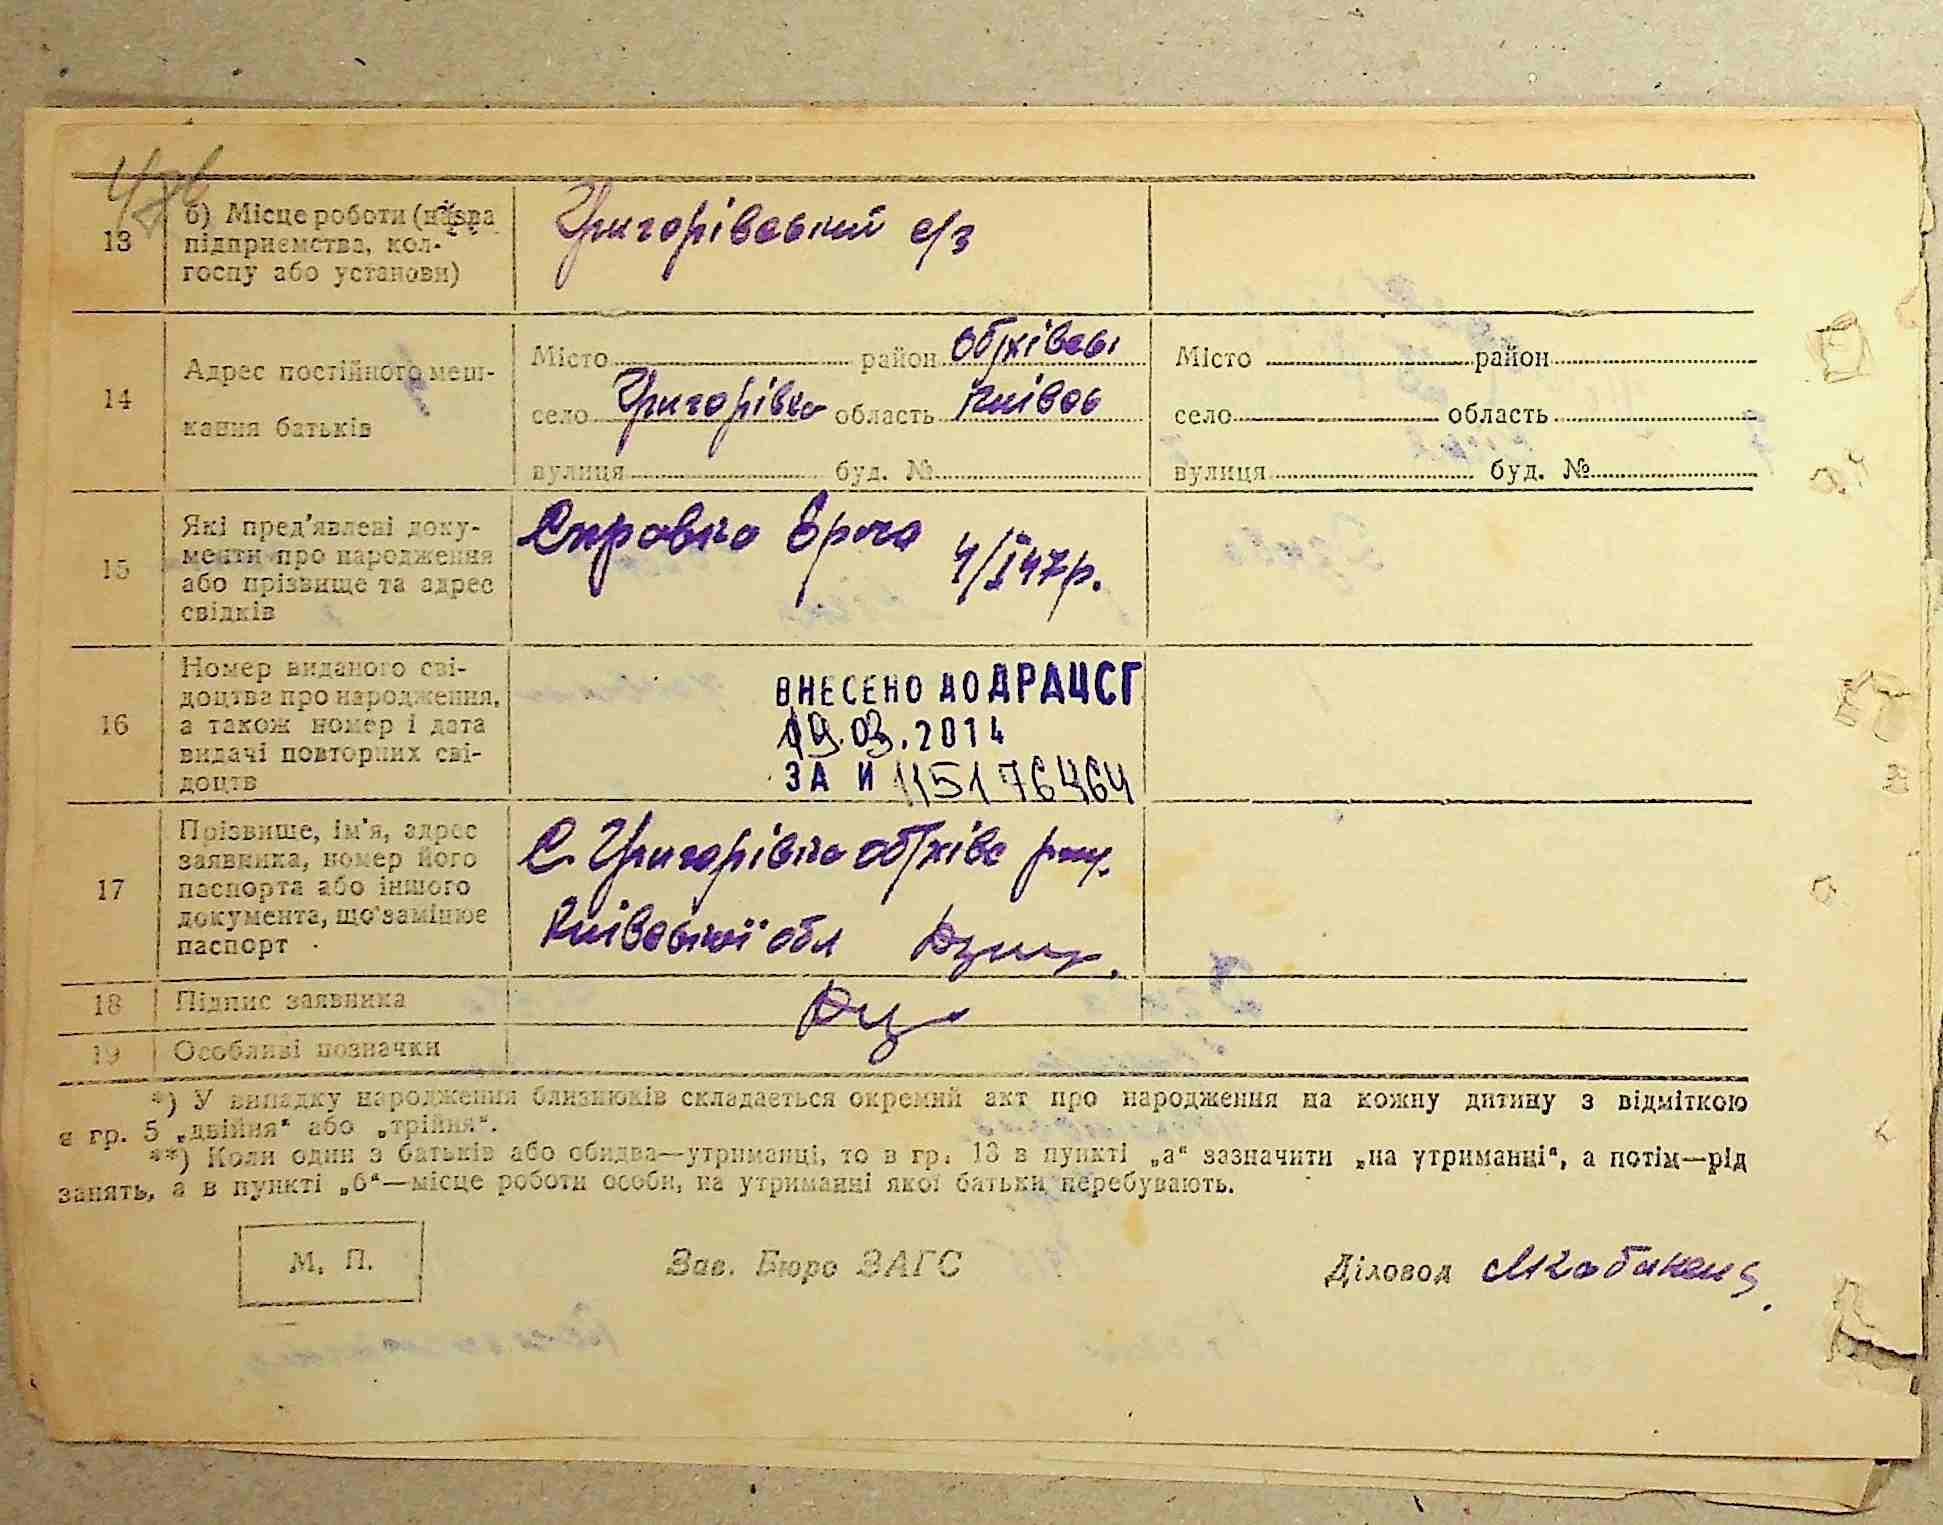 478
13
б) Місце роботи (назва
підприємства, кол-
госпу або установи)
Григорівський с/з
14
Адрес постійного меш-
кання батьків
Місто район Обухівськ
село Григорівка область Київськ
вулиця буд. №
Місто район
село область
вулиця буд. №
15
Які пред'явлені доку-
менти про народження
або прізвище та адрес
свідків
Справка
4/I 47р.
16
Номер виданого сві-
доцтва про народження,
а також номер і дата
видачі повторних сві-
доцтв
ВНЕСЕНО ДО ДРАЦСГ
19.03.2014
ЗА И 115176464
17
Прізвище, ім'я, адрес
заявника, номер його
паспорта або іншого
документа, що замінює
паспорт
С. Григорівка
Київської обл
18
Підпис заявника
19
Особливі позначки
*) У випадку народження близнюків складається окремий акт про народження на кожну дитину з відміткою
в гр. 5 „двійня“ або „трійня“.
**) Коли один з батьків або обидва—утриманці, то в гр. 13 в пункті „а“ зазначити „на утриманні“, а потім—рід
занять, а в пункті „б“—місце роботи особи, на утриманні якої батьки перебувають.
М. П.
Зав. Бюро ЗАГС
Діловод